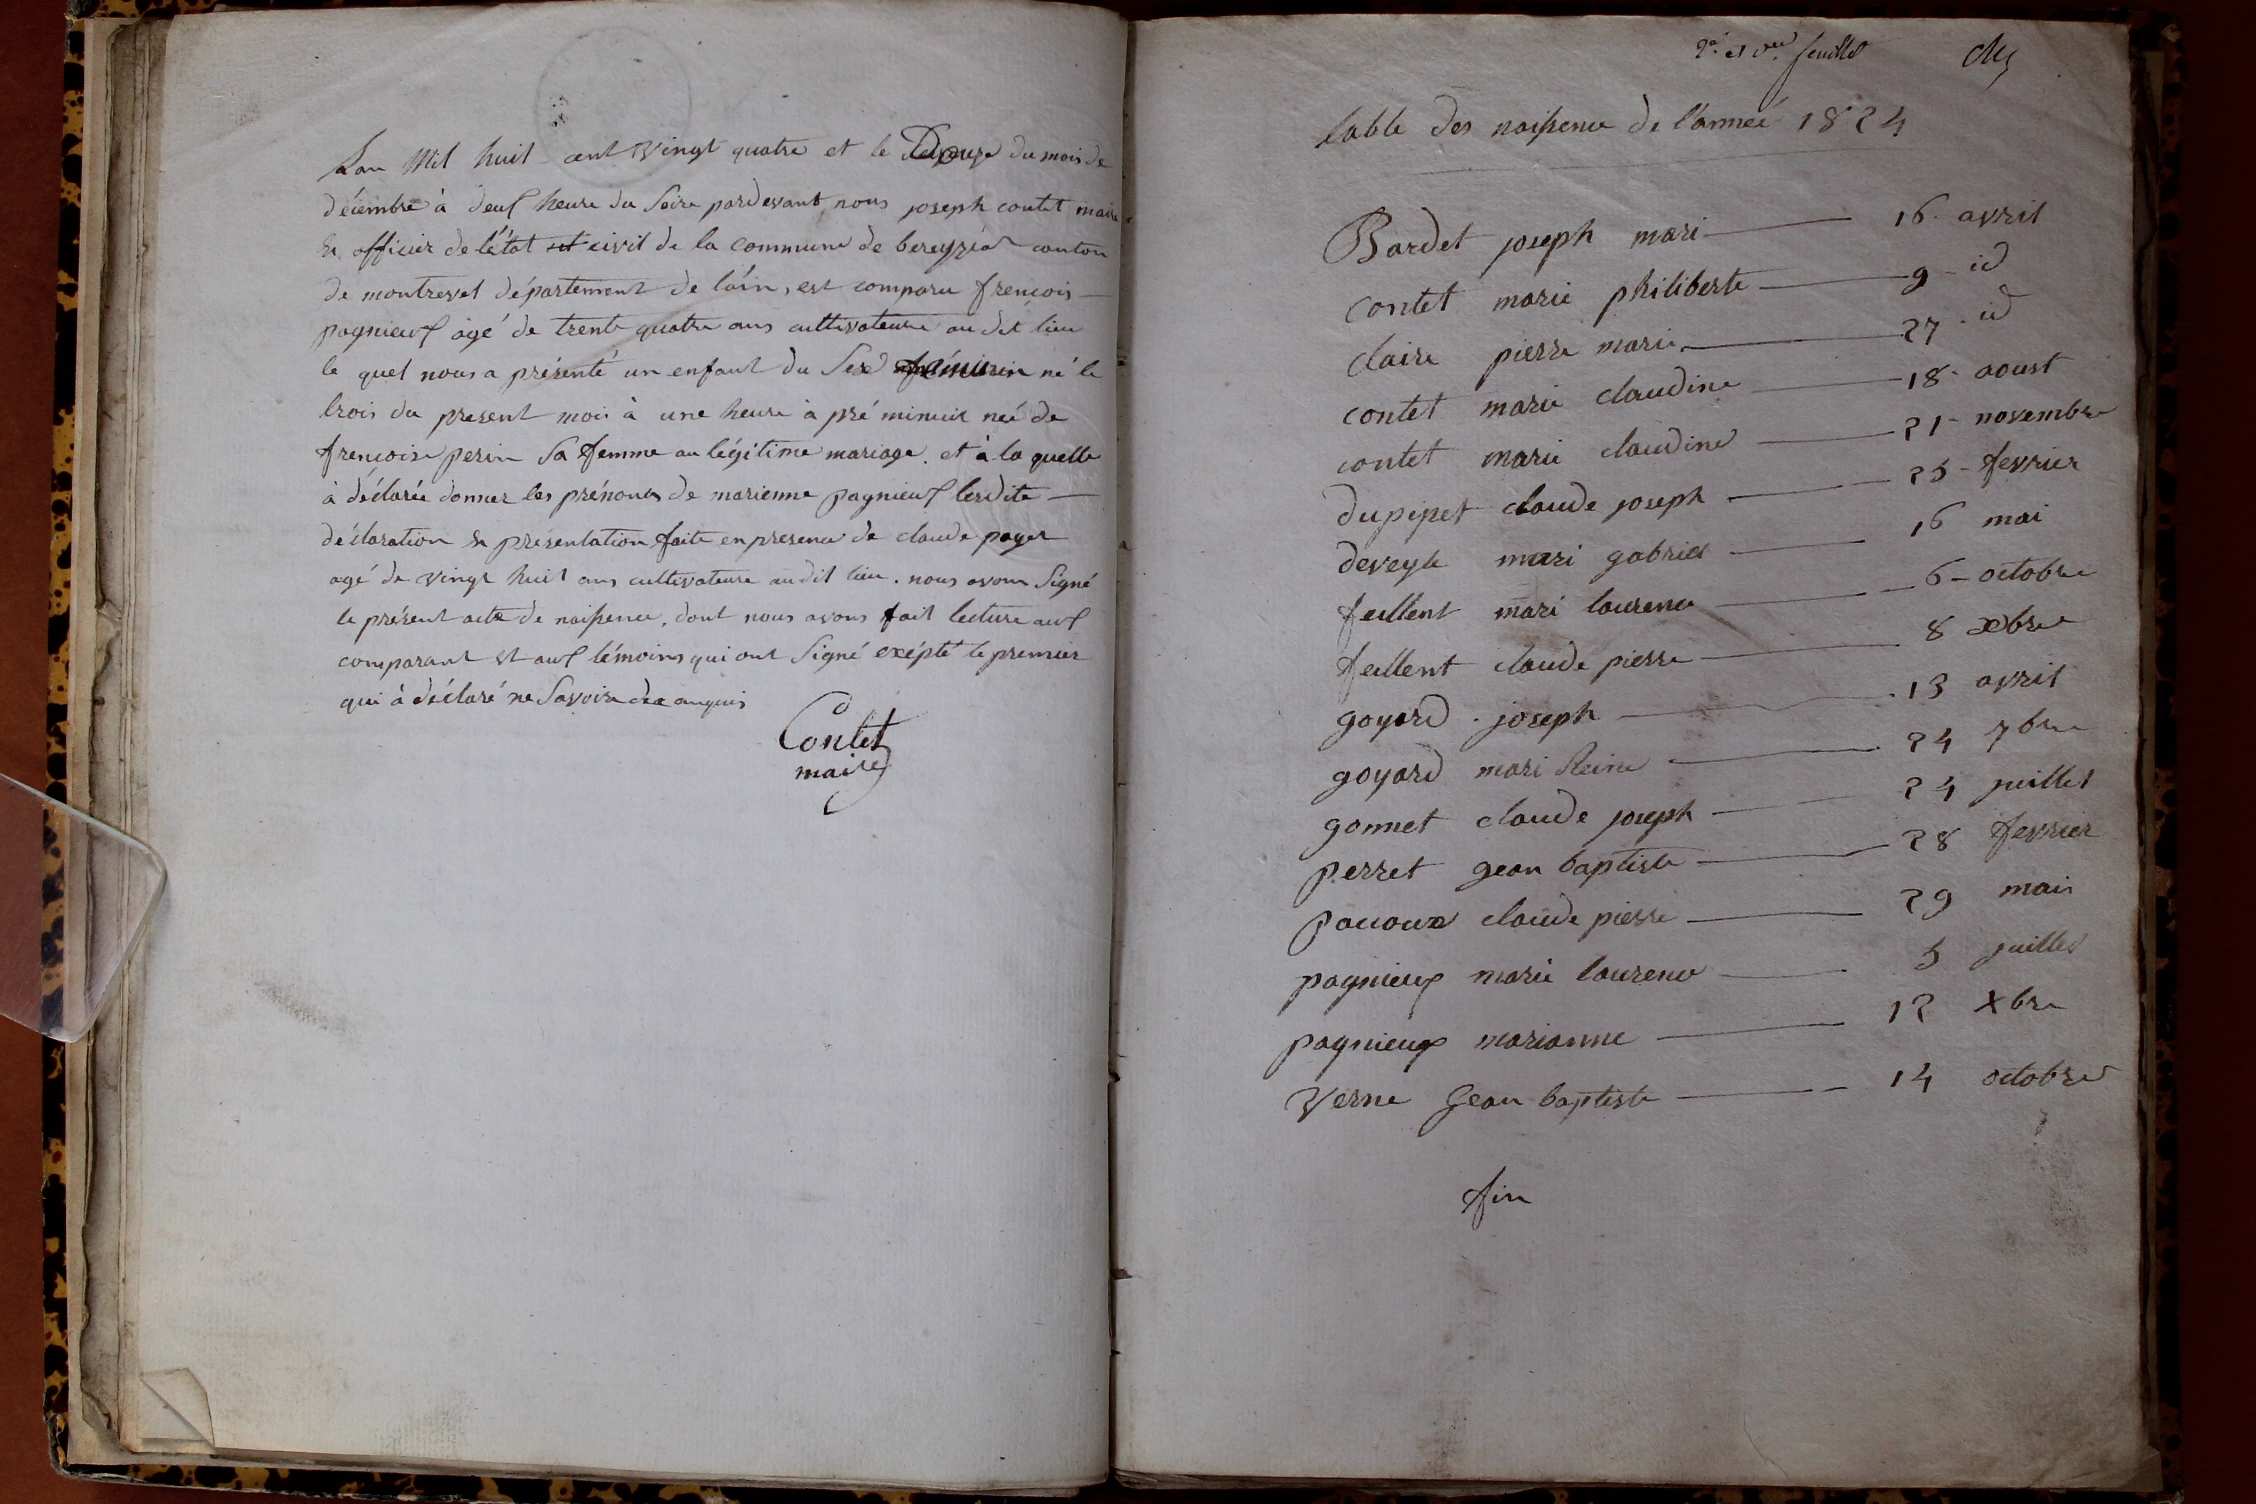 Lan Mil huit cent vingt quatre et le Douze du mois de
décembre à deux heure du Soire pardevant nous joseph contet maire
et officier de l'état civil de la commune de bereyziat canton
de montrevel département de l'áin, est comparu frencois
pagnieux agé de trente quatre ans cultivateure au dit lieu
le quel nous a présenté un enfant du Sexe féminin né le
trois du present mois à une heure à pré minuit neé de
frencoise perin Sa femme au légitime mariage. et à la quelle
à déclarée donner les prénoms de marienne pagnieux lesdite
déclaration et présentation faite en presence de claude
agé de vingt huit ans cultivateure audit lieu. nous avons Signé
le présent acte de naissence, dont nous avons fait lecture aux
comparant et aux témoins qui ont Signé exépté le premier
qui à déclaré ne Savoire de ce anquis
Contet
maire
feuillet
table des naissence de l'anneé 1824
Bardet joseph mari 16 avril
contet marie philiberte 9 id
claire pierre marie 27 id
contet marie claudine 18 aoust
contet marie claudine 21 novembre
dupipet claude joseph 25 fevrier
deveyle mari gabriel 16 mai
feillent mari laurence 6 octobre
feillent claude pierre 8 xbre
goyard joseph 13 avril
goyard mari Reine 24 7bre
gonnet claude joseph 24 juillet
perret gean baptiste 28 fevrier
pacoux claude pierre 29 mais
pagnieux marie laurence 5 juillet
pagnieux marianne 12 xbre
Verne Jean baptiste 14 octobre
fin